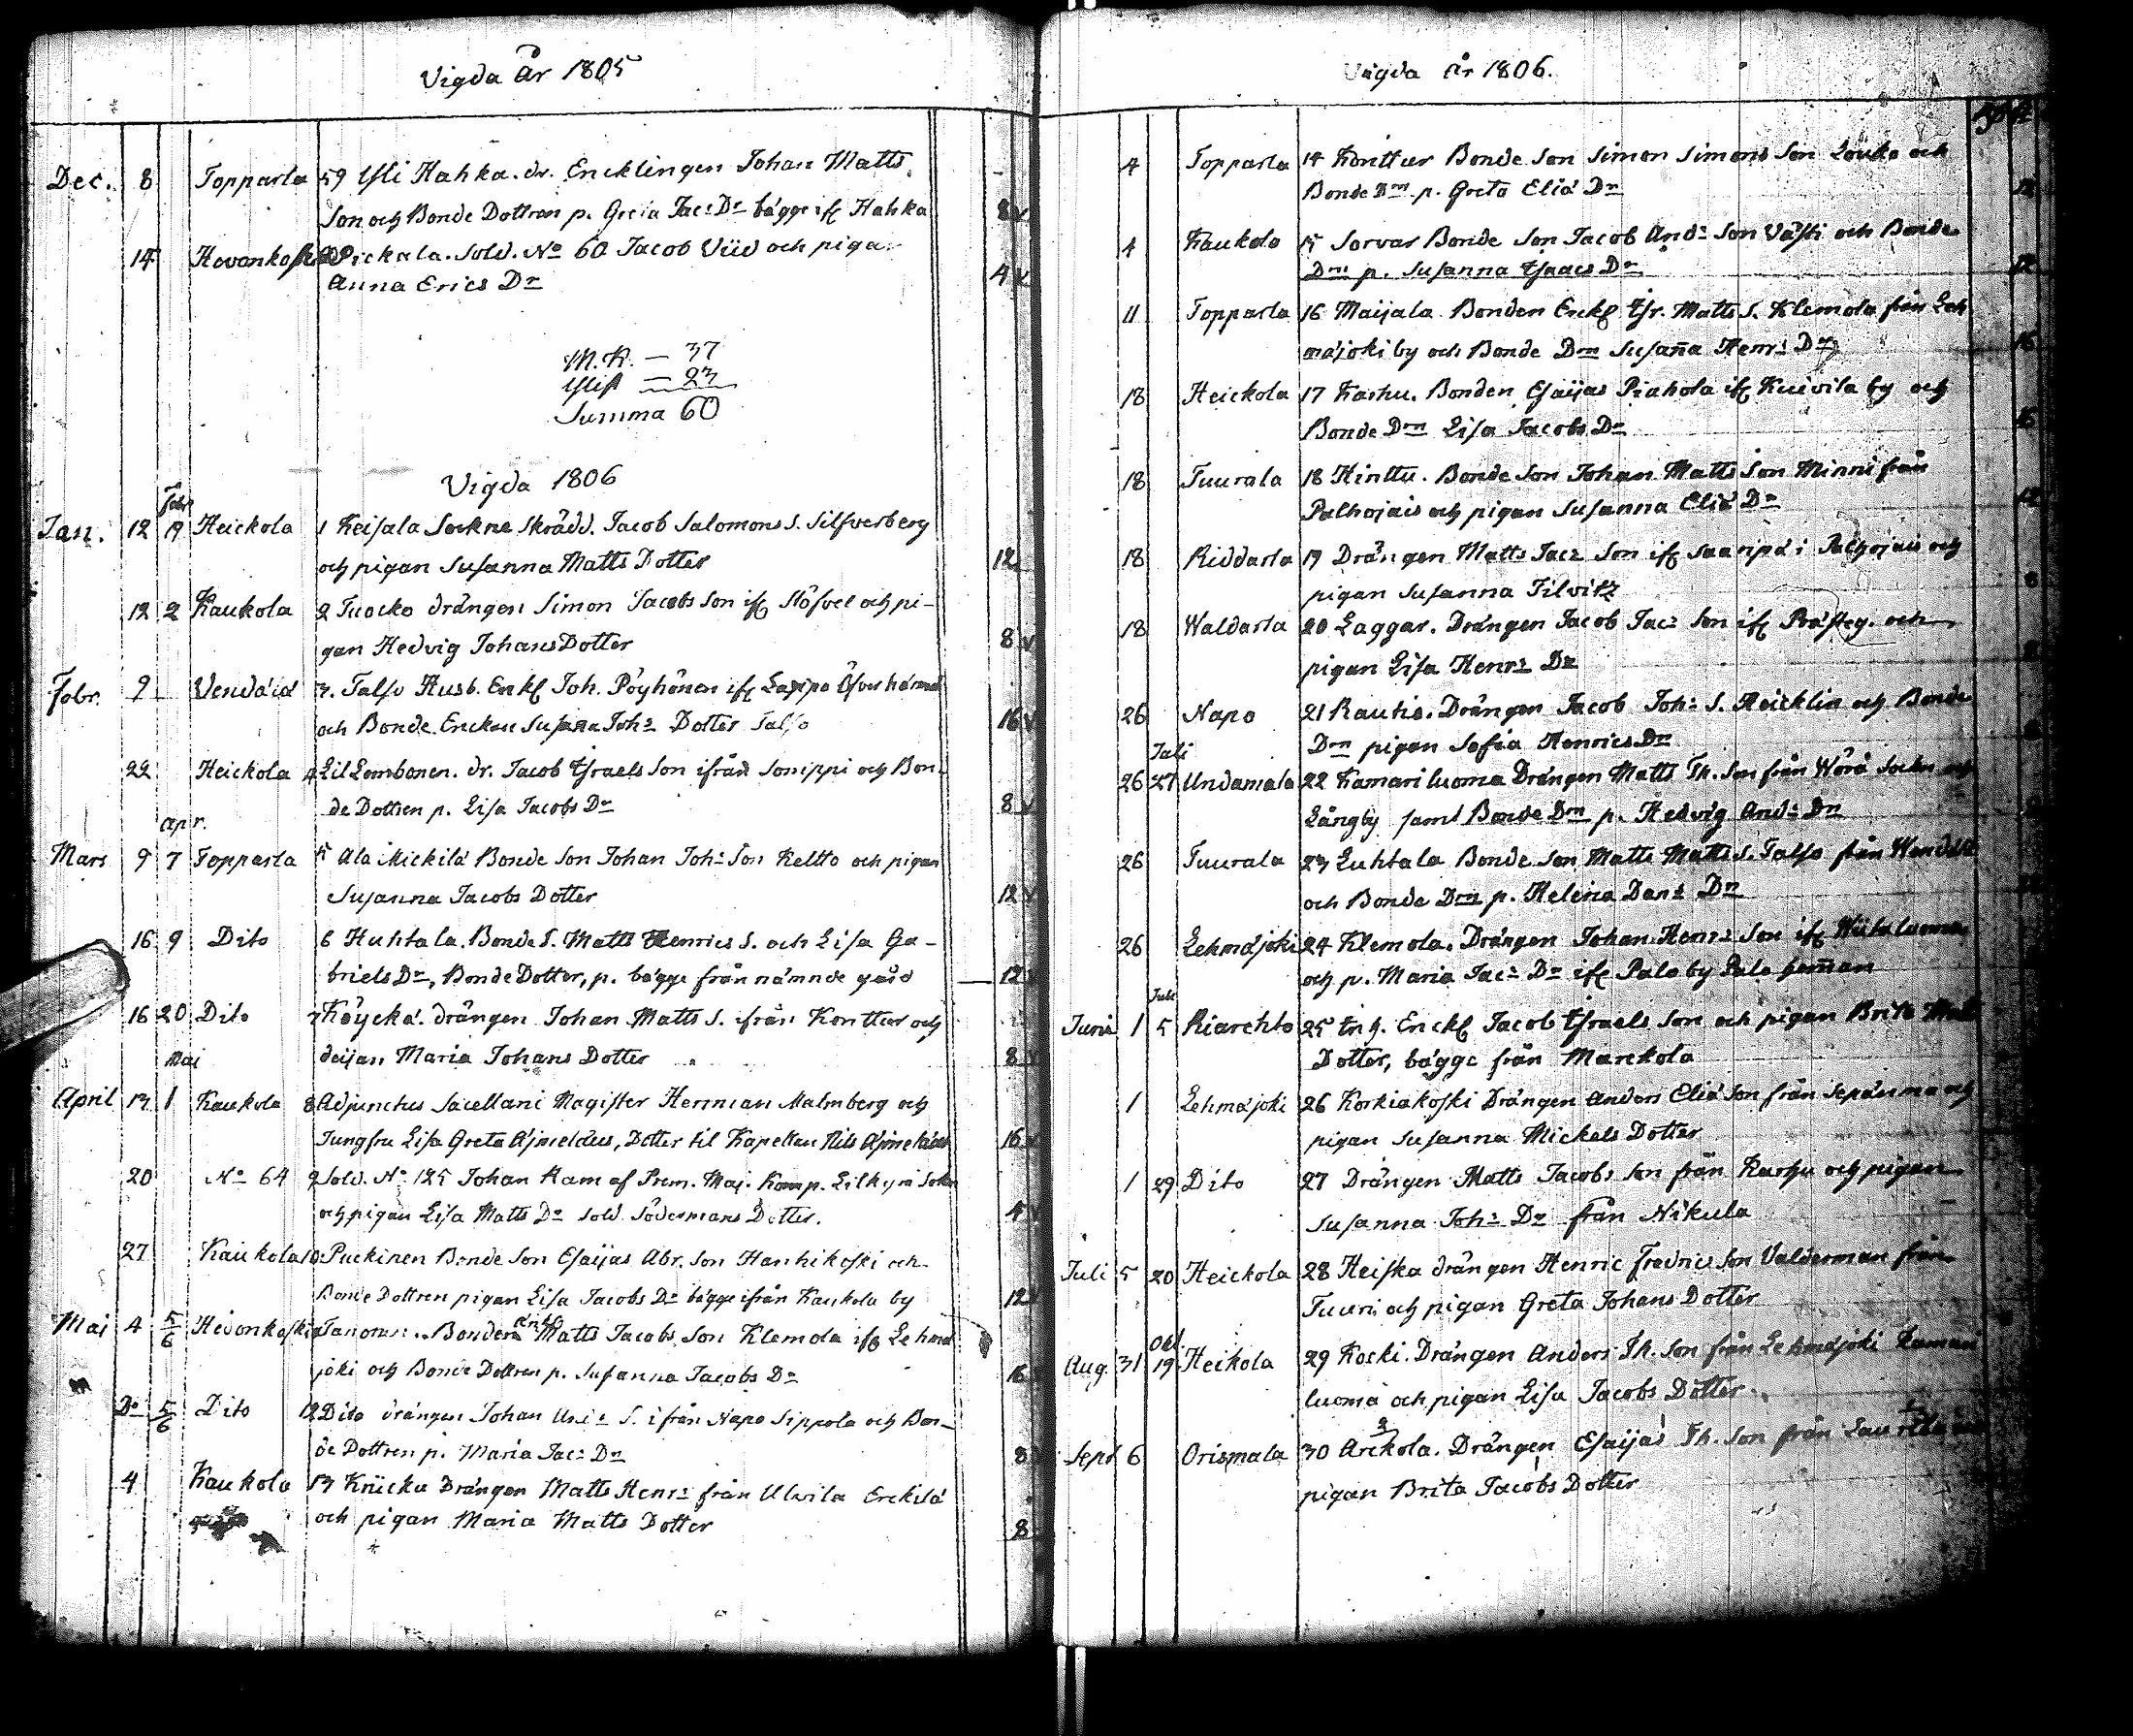 Vigda År 1805
Dec. 8 Topparla 59 Yli Hahka. dr. Encklingen Johan Matts
Son och Bonde Dottren p. Greta Jac: Dr bägge ifr Hahka 8
14 Hevonkoski 60 Pickala. Sold. No 60 Jacob Viid och piga
Anna Erics Dr 4
M.K. — 37
Ylist — 23
Summa 60
Vigda 1806
Febr
Jan. 12 19 Heickola 1 Keisala Sockne Skrädd. Jacob Salomons S. Silfverberg
och pigan Susanna Matts Dotter 12
12 2 Kaukola 2 Tuocko drängen Simon Jacobs Son ifr Slöfvel och pi-
gan Hedvig Johans Dotter 8
Febr. 9 Vendälä 3. Talso Husb. Enkl Joh. Pöyhönen ifr Lappo Öfverhärmä
och Bonde Enckan Susana Joh: Dotter Talso 16
22 Heickola 4 Lil Lombonen. dr. Jacob Israels Son ifrån Sonippi och Bon-
de Dottren p. Lisa Jacobs Dr 8
apr.
Mars 9 7 Topparla 5 Ala Mickilä Bonde Son Johan Joh: Son Keltto och pigan
Susanna Jacobs Dotter 12
16 9 Dito 6 Huhtala. Bonde S. Matts Henrics S. och Lisa Ga-
briels Dr, Bonde Dotter, p. bägge från nämnde gård 12
16 20 Dito 7 Köyckä. drängen Johan Matts S. från Konttur och
deijan Maria Johans Dotter 8
Maj
April 13 1 Kaukola 8 Adjunctus Sacellani Magister Herman Malmberg och
Jungfru Lisa Greta Ajmelæus, Dotter til Kapellan Nils Ajmelæus 16
20 No 64 9 Sold. No 125 Johan Ram af Prem. Maj. Komp. Lilkyrå Sokn
och pigan Lisa Matts Dr Sold Södermans Dotter. 4
27 Kaukola 10 Puckinen Bonde Son Esaijas Abr. Son Hanhikoski och
Bonde Dottren pigan Lisa Jacobs Dr bägge ifrån Kaukola by 12
Maj 4 5/6 Hevonkoski Bonden Matts Jacobs Son Klemola ifr Lehmä
joki och Bonde Dottren p. Susanna Jacobs Dr 16
Do 5/6 Dito 12 Dito drängen Johan S. ifrån Napo Sippola och Bon-
de Dottren p. Maria Jac: Dr 8
4 Kaukola 13 Knicku Drängen Matts Henr: från Ulvila Erckilä
och pigan Maria Matts Dotter 8
Vigda År 1806.
4 Topparla 14 Konttur Bonde Son Simon Simons Son Louko och
Bonde Drn p. Greta Eliæ Dr
4 Kaukola 15 Sorvar Bonde Son Jacob And: Son Västi och Bonde
Drn p. Susanna Isaacs Dr 12
11 Topparla 16 Maijala Bonden Enckl Isr. Matts S. Klemola från Leh
mäjoki by och Bonde Drn Susaña Henr: Dr 16
18 Heickola 17 Karhu. Bonden Esaijas Piahola ifr Kuivila by och
Bonde Drn Lisa Jacobs Dr
18 Tuurala 18 Hinttu. Bonde Son Johan Matts Son Minni från
Palhojais och pigan Susanna Eliæ Dr 12
18 Riddarla 19 Drängen Matts Jac: Son ifr Saaripä i Palhojais och
pigan Susanna Tilvitz 8
18 Waldarla 20 Laggar. Drängen Jacob Jac: Son ifr Prästeg. och
pigan Lisa Henr: Dr
26 Napo 21 Rautio. Drängen Jacob Joh: S. Heicklin och Bonde
Drn pigan Sofia Henrics Dr
Juli
26 27 Undamala 22 Kamariluoma Drängen Matts Th. Son från Wörå Sockn och
Långby samt Bonde Drn p. Hedvig And: Dr
26 Tuurala 23 Luhtala Bonde Son Matts Matts S. Talso från Wendälä
och Bonde Drn p. Helena Dan: Dr
26 Lehmäjoki 24 Klemola. Drängen Johan Henr: Son ifr Wiitaluoma
och p. Maria Jac: Dr ifr Palo by Palo heman
Juli
Juni 1 5 Riarehto 25 Inh. Enckl Jacob Israels Son och pigan Brita Matts
Dotter, bägge från Marckola
1 Lehmäjoki 26 Korkiakoski Drängen Anders Eliæ Son från Sepänmaa och
pigan Susanna Mickels Dotter
1 29 Dito 27 Drängen Matts Jacobs Son från Karhu och pigan
Susanna Joh: Dr från Nikula
Juli 5 20 Heickola 28 Heiska drängen Henric Fredrics Son Valderman från
Tuuri och pigan Greta Johans Dotter
Okt
Aug. 31 19 Heikola 29 Kocki. Drängen Anders Th. Son från Lehmäjoki Kamari
luoma och pigan Lisa Jacobs Dotter
Sept 6 Orismala 30 Arckola. Drängen Esaijas Th. Son från
pigan Brita Jacobs Dotter